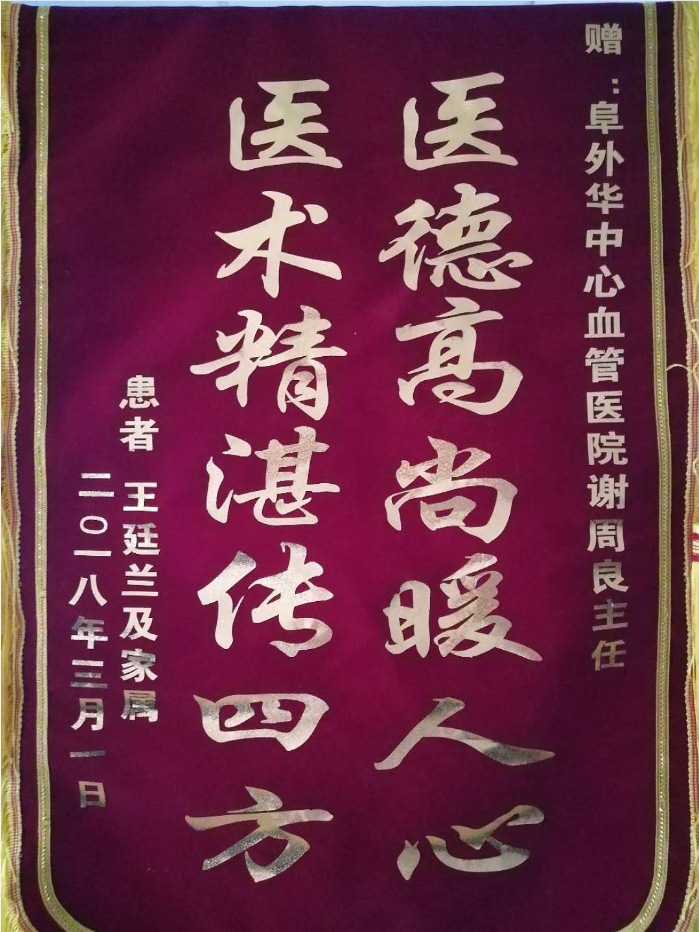 赠：阜外华中心血管医院谢周良主任
医德高尚暖人心
医术精湛传四方
患者 王廷兰及家属
二〇一八年三月一日